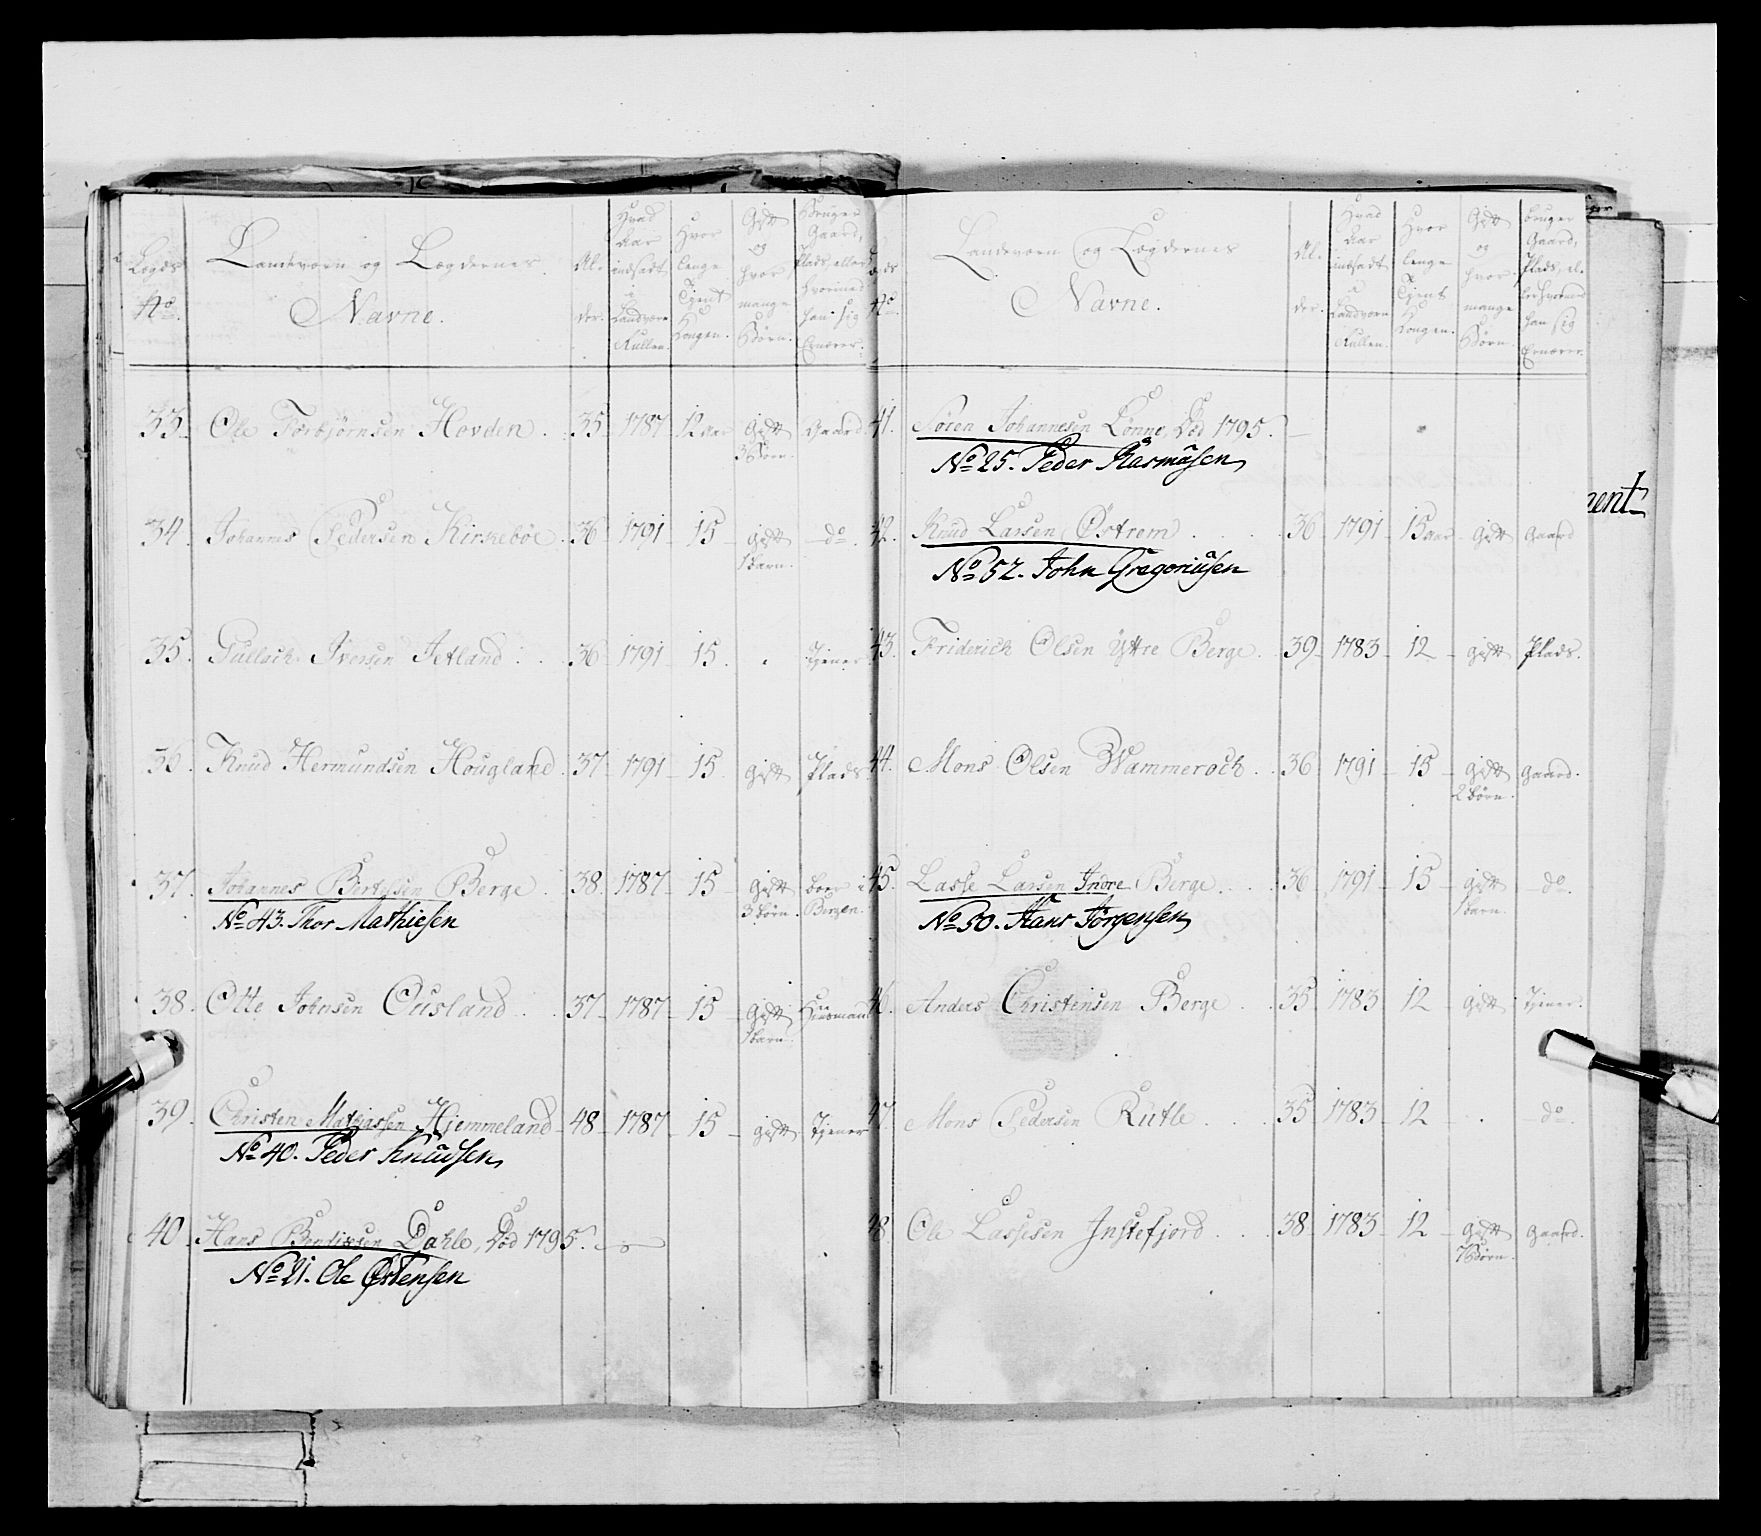 Lægds
No.
Landeværn og Lægdernes
Navne.
Al-
der.
Hvad
Aar
indsadt
i
Landværn
Rullen.
Hvor
lenge
Tjent
Kongen.
Gift
og
hvor
mange
Børn.
Bruger
Gaard,
Plads, eller
hvormed
han sig
Ernærer.
33. Ole Torbjørnsen Hovden. 35 1787 12 aar Gift Gaard
3 Børn.
34. Johannes Pedersen Kirkebøe 36 1791 15 gift do.
1 barn.
35. Gullach Iversen Jetland. 36 1791 15. Tjener
36. Knud Hermundsen Hougland. 37 1791 15. gift Plads
37. Johannes Bertessen Berge. 38. 1787 15 gift boer i
3 børn. Bergen.
No 43. Thor Mathiesen
38. Otte Johnsen Ousland 37 1787 15 gift Huusmand
1 barn.
39. Christen Mathiassen Hjemmeland 48 1787 15 gift Tjener
No 40. Peder Knudsen
40. Hans Bendixsen Dahle, Død 1795.
No 21. Ole Østensen
No.
Landeværn og Lægdernes
Navne.
Al-
der.
Hvad
Aar
indsadt
i
Landværn
Rullen.
Hvor
lenge
Tjent
Kongen.
Gift
og
hvor
mange
Børn.
bruger
Gaard,
Plads, el-
ler hvormed
han sig
Ernærer.
41. Søren Johannesen Lønne, Død 1795.
No 25. Peder Rasmusen
ment
42. Knud Larsen Østrem 36 1791 15 aar gift gaard
No 52. John Gregoriusen
43. Friderich Olsen Yttre Berge. 39 1783 12 gift Plads.
44. Mons Olsen Wammeroch. 36 1791 15 gift gaard.
2 børn.
45. Lasse Larsen Indre Berge. 36 1791 15 gift do.
1 barn.
No 50. Hans Jørgensen
46. Anders Christensen Berge 35 1783 12 gift Tjener.
47. Mons Pedersen Rutle 35 1783 12 do.
48. Ole Lassesen Instefjord 38 1783 12 gift gaard.
7 Børn.